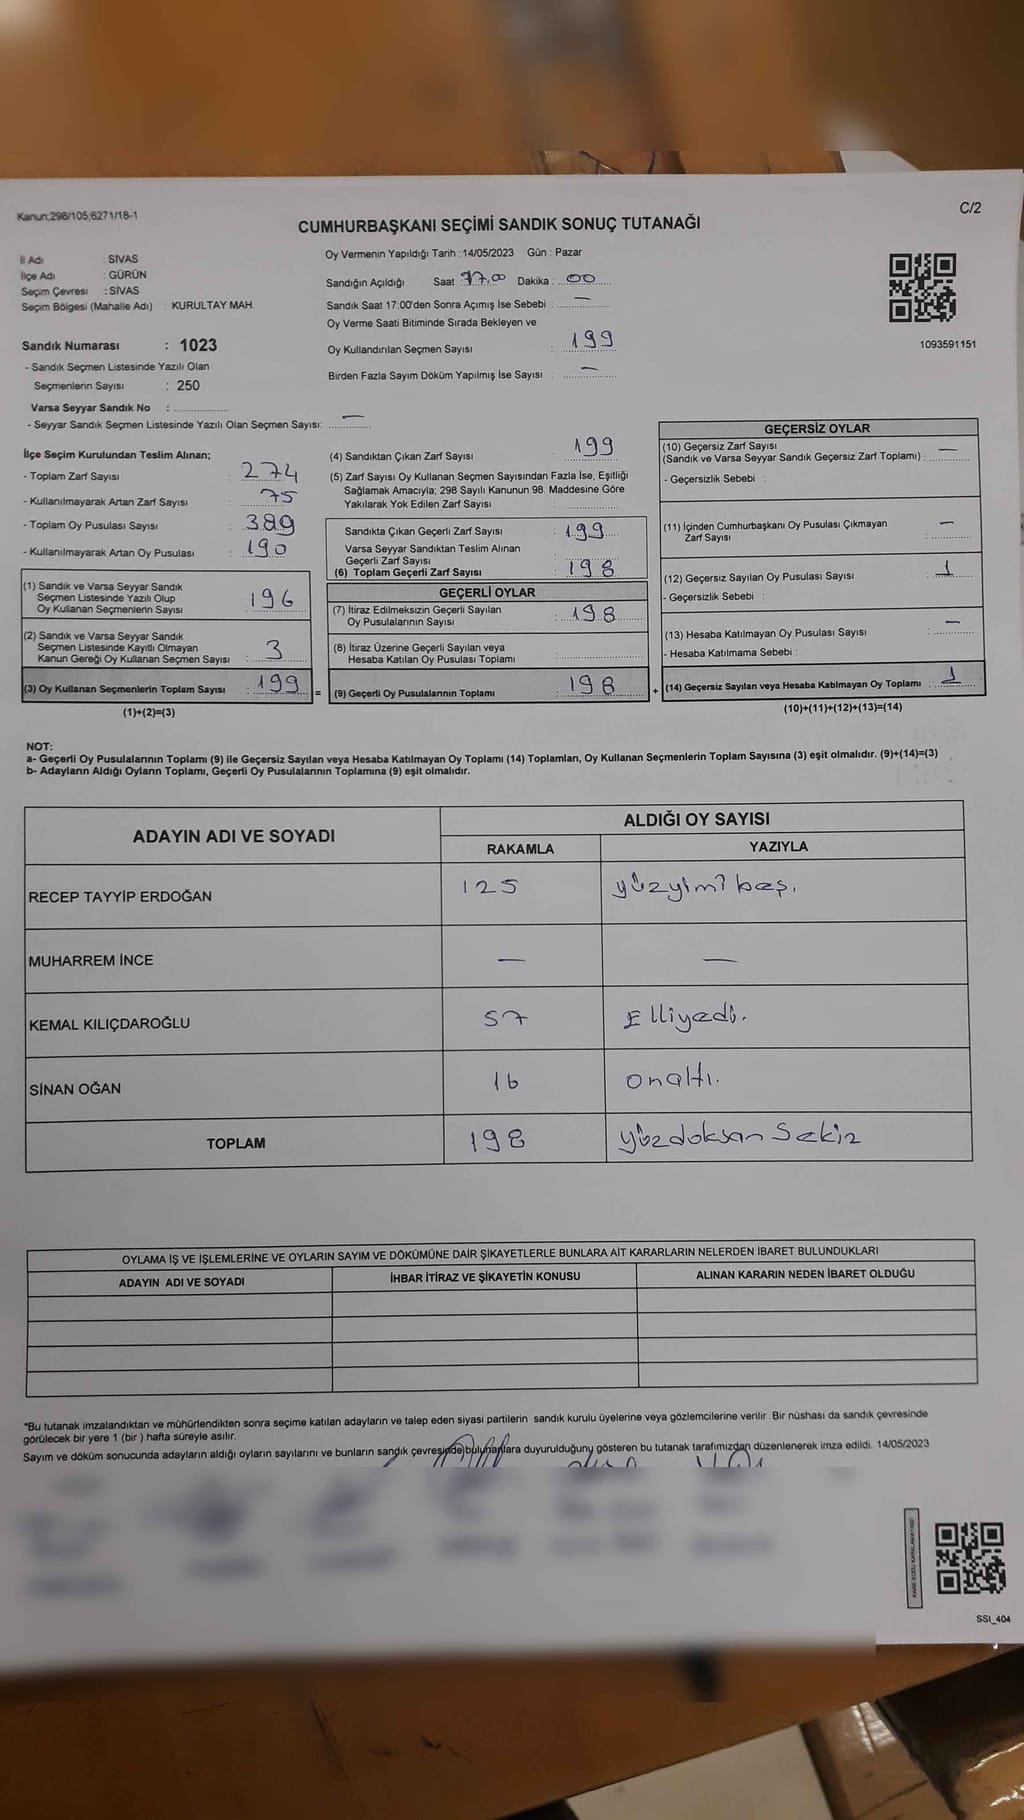 Kanun;298/105;6271/18-1
C/2
CUMHURBAŞKANI SEÇİMİ SANDIK SONUÇ TUTANAĞI
İl Adı : SİVAS
İlçe Adı : GÜRÜN
Seçim Çevresi : SİVAS
Seçim Bölgesi (Mahalle Adı) : KURULTAY MAH.
Sandık Numarası : 1023
- Sandık Seçmen Listesinde Yazılı Olan
Seçmenlerin Sayısı : 250
Varsa Seyyar Sandık No :
- Seyyar Sandık Seçmen Listesinde Yazılı Olan Seçmen Sayısı: —
Oy Vermenin Yapıldığı Tarih :14/05/2023 Gün : Pazar
Sandığın Açıldığı Saat 17.00 Dakika : 00
Sandık Saat 17:00'den Sonra Açımış İse Sebebi : —
Oy Verme Saati Bitiminde Sırada Bekleyen ve
Oy Kullandırılan Seçmen Sayısı : 199
Birden Fazla Sayım Döküm Yapılmış İse Sayısı : —
1093591151
İlçe Seçim Kurulundan Teslim Alınan;
- Toplam Zarf Sayısı : 274
- Kullanılmayarak Artan Zarf Sayısı : 75
- Toplam Oy Pusulası Sayısı : 389
- Kullanılmayarak Artan Oy Pusulası : 190
(1) Sandık ve Varsa Seyyar Sandık
Seçmen Listesinde Yazılı Olup
Oy Kullanan Seçmenlerin Sayısı : 196
(2) Sandık ve Varsa Seyyar Sandık
Seçmen Listesinde Kayıtlı Olmayan
Kanun Gereği Oy Kullanan Seçmen Sayısı : 3
(3) Oy Kullanan Seçmenlerin Toplam Sayısı : 199 =
(1)+(2)=(3)
(4) Sandıktan Çıkan Zarf Sayısı : 199
(5) Zarf Sayısı Oy Kullanan Seçmen Sayısından Fazla İse, Eşitliği
Sağlamak Amacıyla; 298 Sayılı Kanunun 98. Maddesine Göre
Yakılarak Yok Edilen Zarf Sayısı :
Sandıkta Çıkan Geçerli Zarf Sayısı : 199
Varsa Seyyar Sandıktan Teslim Alınan
Geçerli Zarf Sayısı :
(6) Toplam Geçerli Zarf Sayısı : 198
GEÇERLİ OYLAR
(7) İtiraz Edilmeksizin Geçerli Sayılan
Oy Pusulalarının Sayısı : 198
(8) İtiraz Üzerine Geçerli Sayılan veya
Hesaba Katılan Oy Pusulası Toplamı :
(9) Geçerli Oy Pusulalarının Toplamı : 198 +
GEÇERSİZ OYLAR
(10) Geçersiz Zarf Sayısı
(Sandık ve Varsa Seyyar Sandık Geçersiz Zarf Toplamı) : —
- Geçersizlik Sebebi :
(11) İçinden Cumhurbaşkanı Oy Pusulası Çıkmayan
Zarf Sayısı : —
(12) Geçersiz Sayılan Oy Pusulası Sayısı : 1
- Geçersizlik Sebebi :
(13) Hesaba Katılmayan Oy Pusulası Sayısı : —
- Hesaba Katılmama Sebebi :
(14) Geçersiz Sayılan veya Hesaba Katılmayan Oy Toplamı : 1
(10)+(11)+(12)+(13)=(14)
NOT:
a- Geçerli Oy Pusulalarının Toplamı (9) ile Geçersiz Sayılan veya Hesaba Katılmayan Oy Toplamı (14) Toplamları, Oy Kullanan Seçmenlerin Toplam Sayısına (3) eşit olmalıdır. (9)+(14)=(3)
b- Adayların Aldığı Oyların Toplamı, Geçerli Oy Pusulalarının Toplamına (9) eşit olmalıdır.
ADAYIN ADI VE SOYADI
ALDIĞI OY SAYISI
RAKAMLA YAZIYLA
RECEP TAYYİP ERDOĞAN 125 yüzyimi beş.
MUHARREM İNCE — —
KEMAL KILIÇDAROĞLU 57 Elliyedi.
SİNAN OĞAN 16 onaltı.
TOPLAM 198 yüzdoksan Sekiz
OYLAMA İŞ VE İŞLEMLERİNE VE OYLARIN SAYIM VE DÖKÜMÜNE DAİR ŞİKAYETLERLE BUNLARA AİT KARARLARIN NELERDEN İBARET BULUNDUKLARI
ADAYIN ADI VE SOYADI İHBAR İTİRAZ VE ŞİKAYETİN KONUSU ALINAN KARARIN NEDEN İBARET OLDUĞU
*Bu tutanak imzalandıktan ve mühürlendikten sonra seçime katılan adayların ve talep eden siyasi partilerin sandık kurulu üyelerine veya gözlemcilerine verilir. Bir nüshası da sandık çevresinde
görülecek bir yere 1 (bir ) hafta süreyle asılır.
Sayım ve döküm sonucunda adayların aldığı oyların sayılarını ve bunların sandık çevresinde bulunanlara duyurulduğunu gösteren bu tutanak tarafımızdan düzenlenerek imza edildi. 14/05/2023
SSI_404